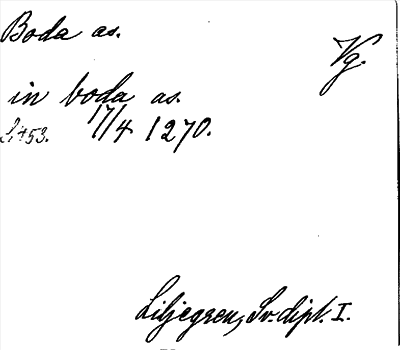 Boda as.
Vg.
in boda as.
17/4 1270.
Liljegren, Sv. dipl. I.